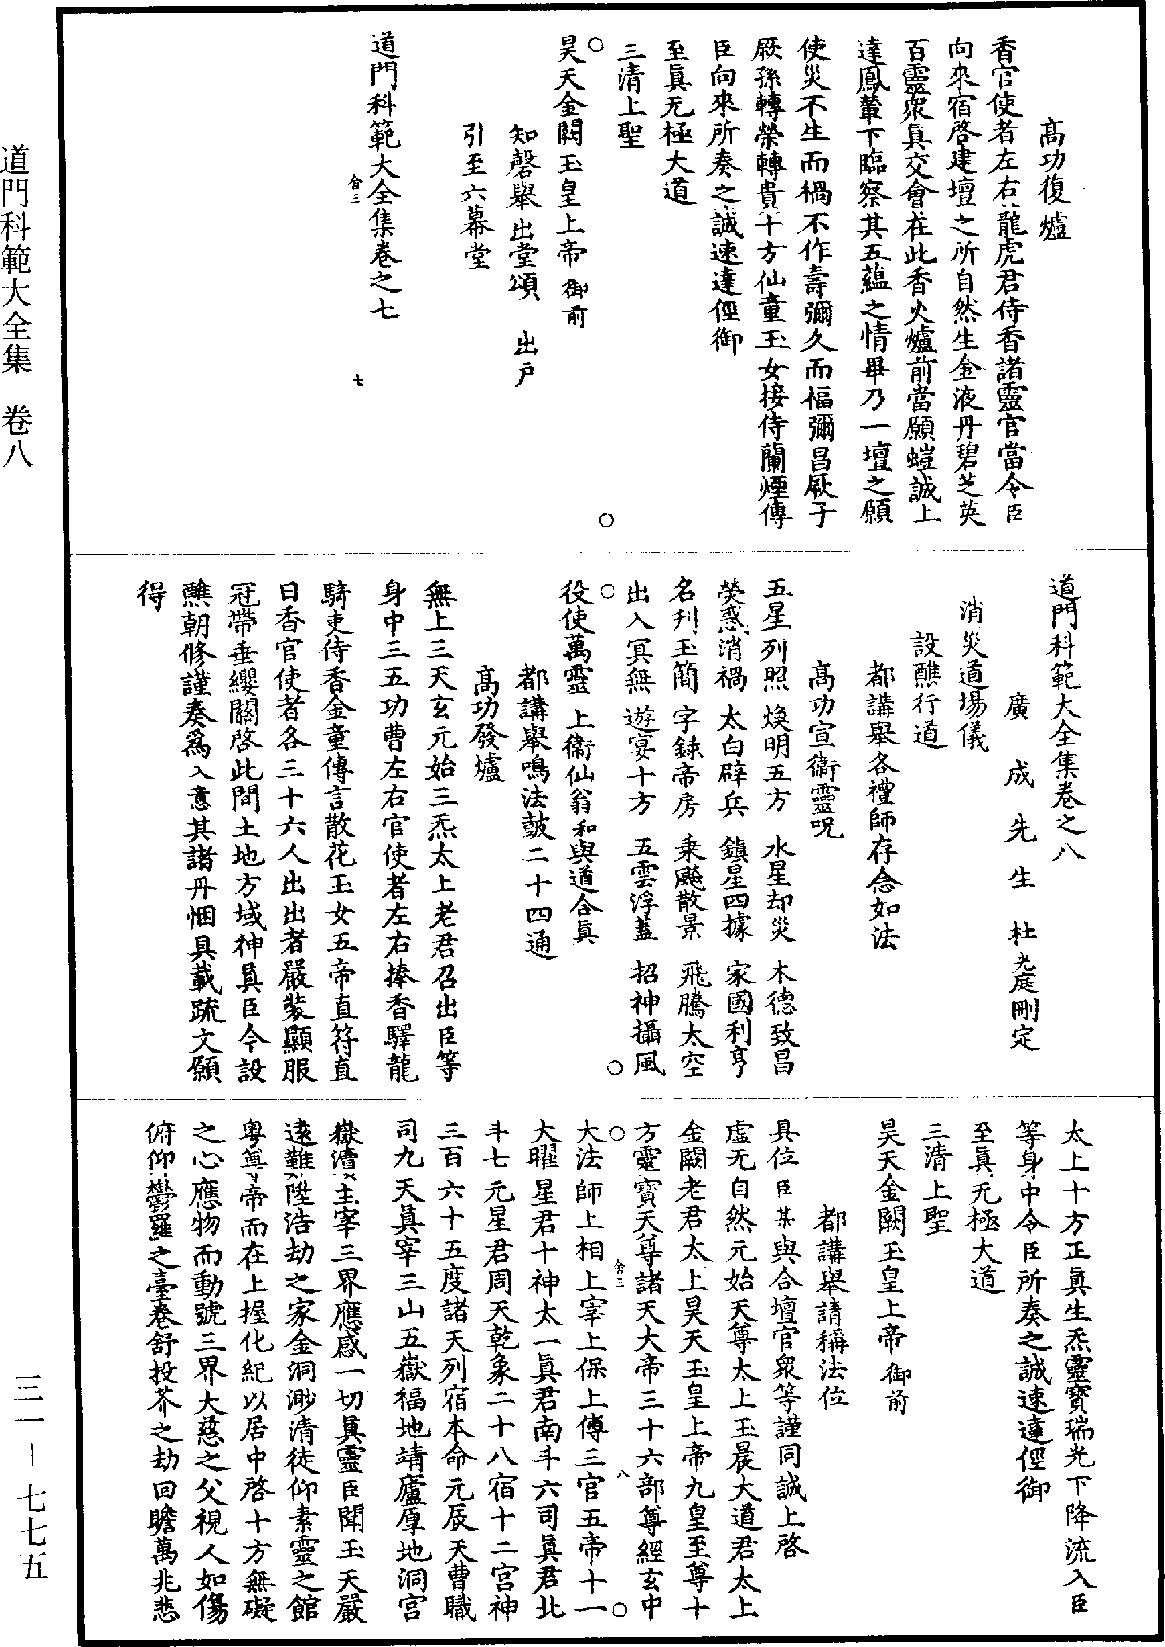 高功復爐
香官使者左右龍虎君侍香諸靈官當令臣
向來宿啓建壇之所自然生金液丹碧芝英
百靈衆眞交會在此香火爐前當願螘誠上
達鳳輦下臨察其五蘊之情畢乃一壇之願
使災不生而禍不作壽彌久而福彌昌厥子
厥孫轉榮轉貴十方仙童玉女接侍蘭煙傳
臣向來所奏之誠速達徑御
至眞无極大道
三清上聖
昊天金闕玉皇上帝 御前
知磬舉出堂頌 出戶
引至六幕堂
道門科範大全集卷之七
七
道門科範大全集卷之八
廣成先生杜光庭刪定
消災道場儀
設醮行道
都講舉各禮師存念如法
高功宣衞靈呪
五星列照 煥明五方 水星却災 木德致昌
熒惑消禍 太白辟兵 鎮星四據 家國利亨
名刋玉簡 字錄帝房 乗飈散景 飛騰太空
出入冥無 遊宴十方 五雲浮蓋 招神攝風
役使萬靈 上衞仙翁 和與道合眞
都講舉鳴法皷二十四通
高功發爐
無上三天玄元始三炁太上老君召出臣等
身中三五功曹左右官使者左右捧香驛龍
騎吏侍香金童傳言散花玉女五帝直符直
日香官使者各三十六人出出者嚴裝顯服
冠帶垂纓關啓此間土地方域神眞臣今設
醮朝修謹奏爲入意其諸丹悃具載疏文願
得
太上十方正眞生炁靈寶瑞光下降流入臣
等身中令臣所奏之誠速達徑御
至眞无極大道
三清上聖
昊天金闕玉皇上帝 御前
都講舉請稱法位
具位臣某與合壇官衆等謹同誠上啓
虛无自然元始天尊太上玉晨大道君太上
金闕老君太上昊天玉皇上帝九皇至尊十
方靈寶天尊諸天大帝三十六部尊經玄中
大法師上相上宰上保上傅三官五帝十一
大曜星君十神太一眞君南斗六司眞君北
斗七元星君周天乾象二十八宿十二宮神
三百六十五度諸天列宿本命元辰天曹職
司九天眞宰三山五嶽福地靖廬厚地洞宮
嶽瀆主宰三界應感一切眞靈臣聞玉天嚴
遠難陞浩劫之家金洞渺清徒仰素靈之館
粤尊帝而在上握化紀以居中啓十方無礙
之心應物而動號三界大慈之父視人如傷
俯仰鬱羅之臺卷舒投芥之劫回瞻萬兆悲
八
道門科範大全集 卷八
三一-七七五